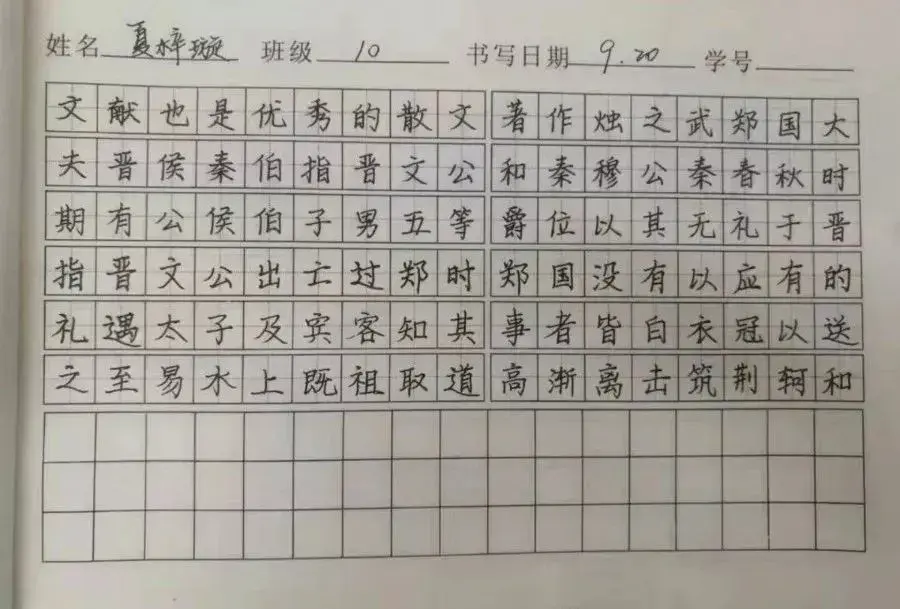 姓名 夏梓璇 班级 10 书写日期 9.20 学号
文献也是优秀的散文著作烛之武郑国大
夫晋侯秦伯指晋文公和秦穆公秦春秋时
期有公侯伯子男五等爵位以其无礼于晋
指晋文公出亡过郑时郑国没有以应有的
礼遇太子及宾客知其事者皆白衣冠以送
之至易水上既祖取道高渐离击筑荆轲和